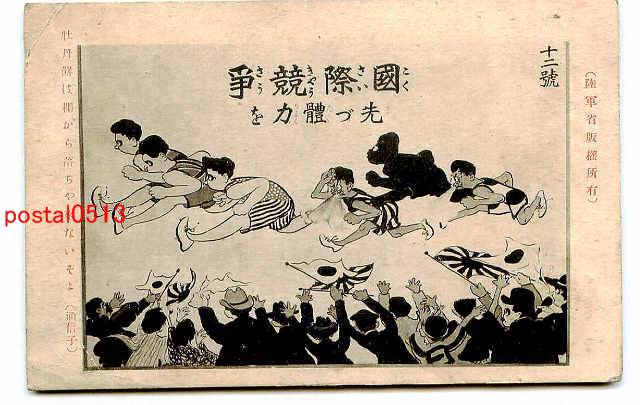 十二號
國際競爭
こくさいきやうさう
先づ體力を
(陸軍省版權所有)
牡丹餅は棚から落ちやしないぞよ (通信子)
postal0513